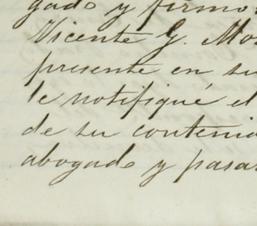 gado y firmo.
Vicente G. Mo
presente en su
le notifiqué el
de su contenid
abogado y pasa